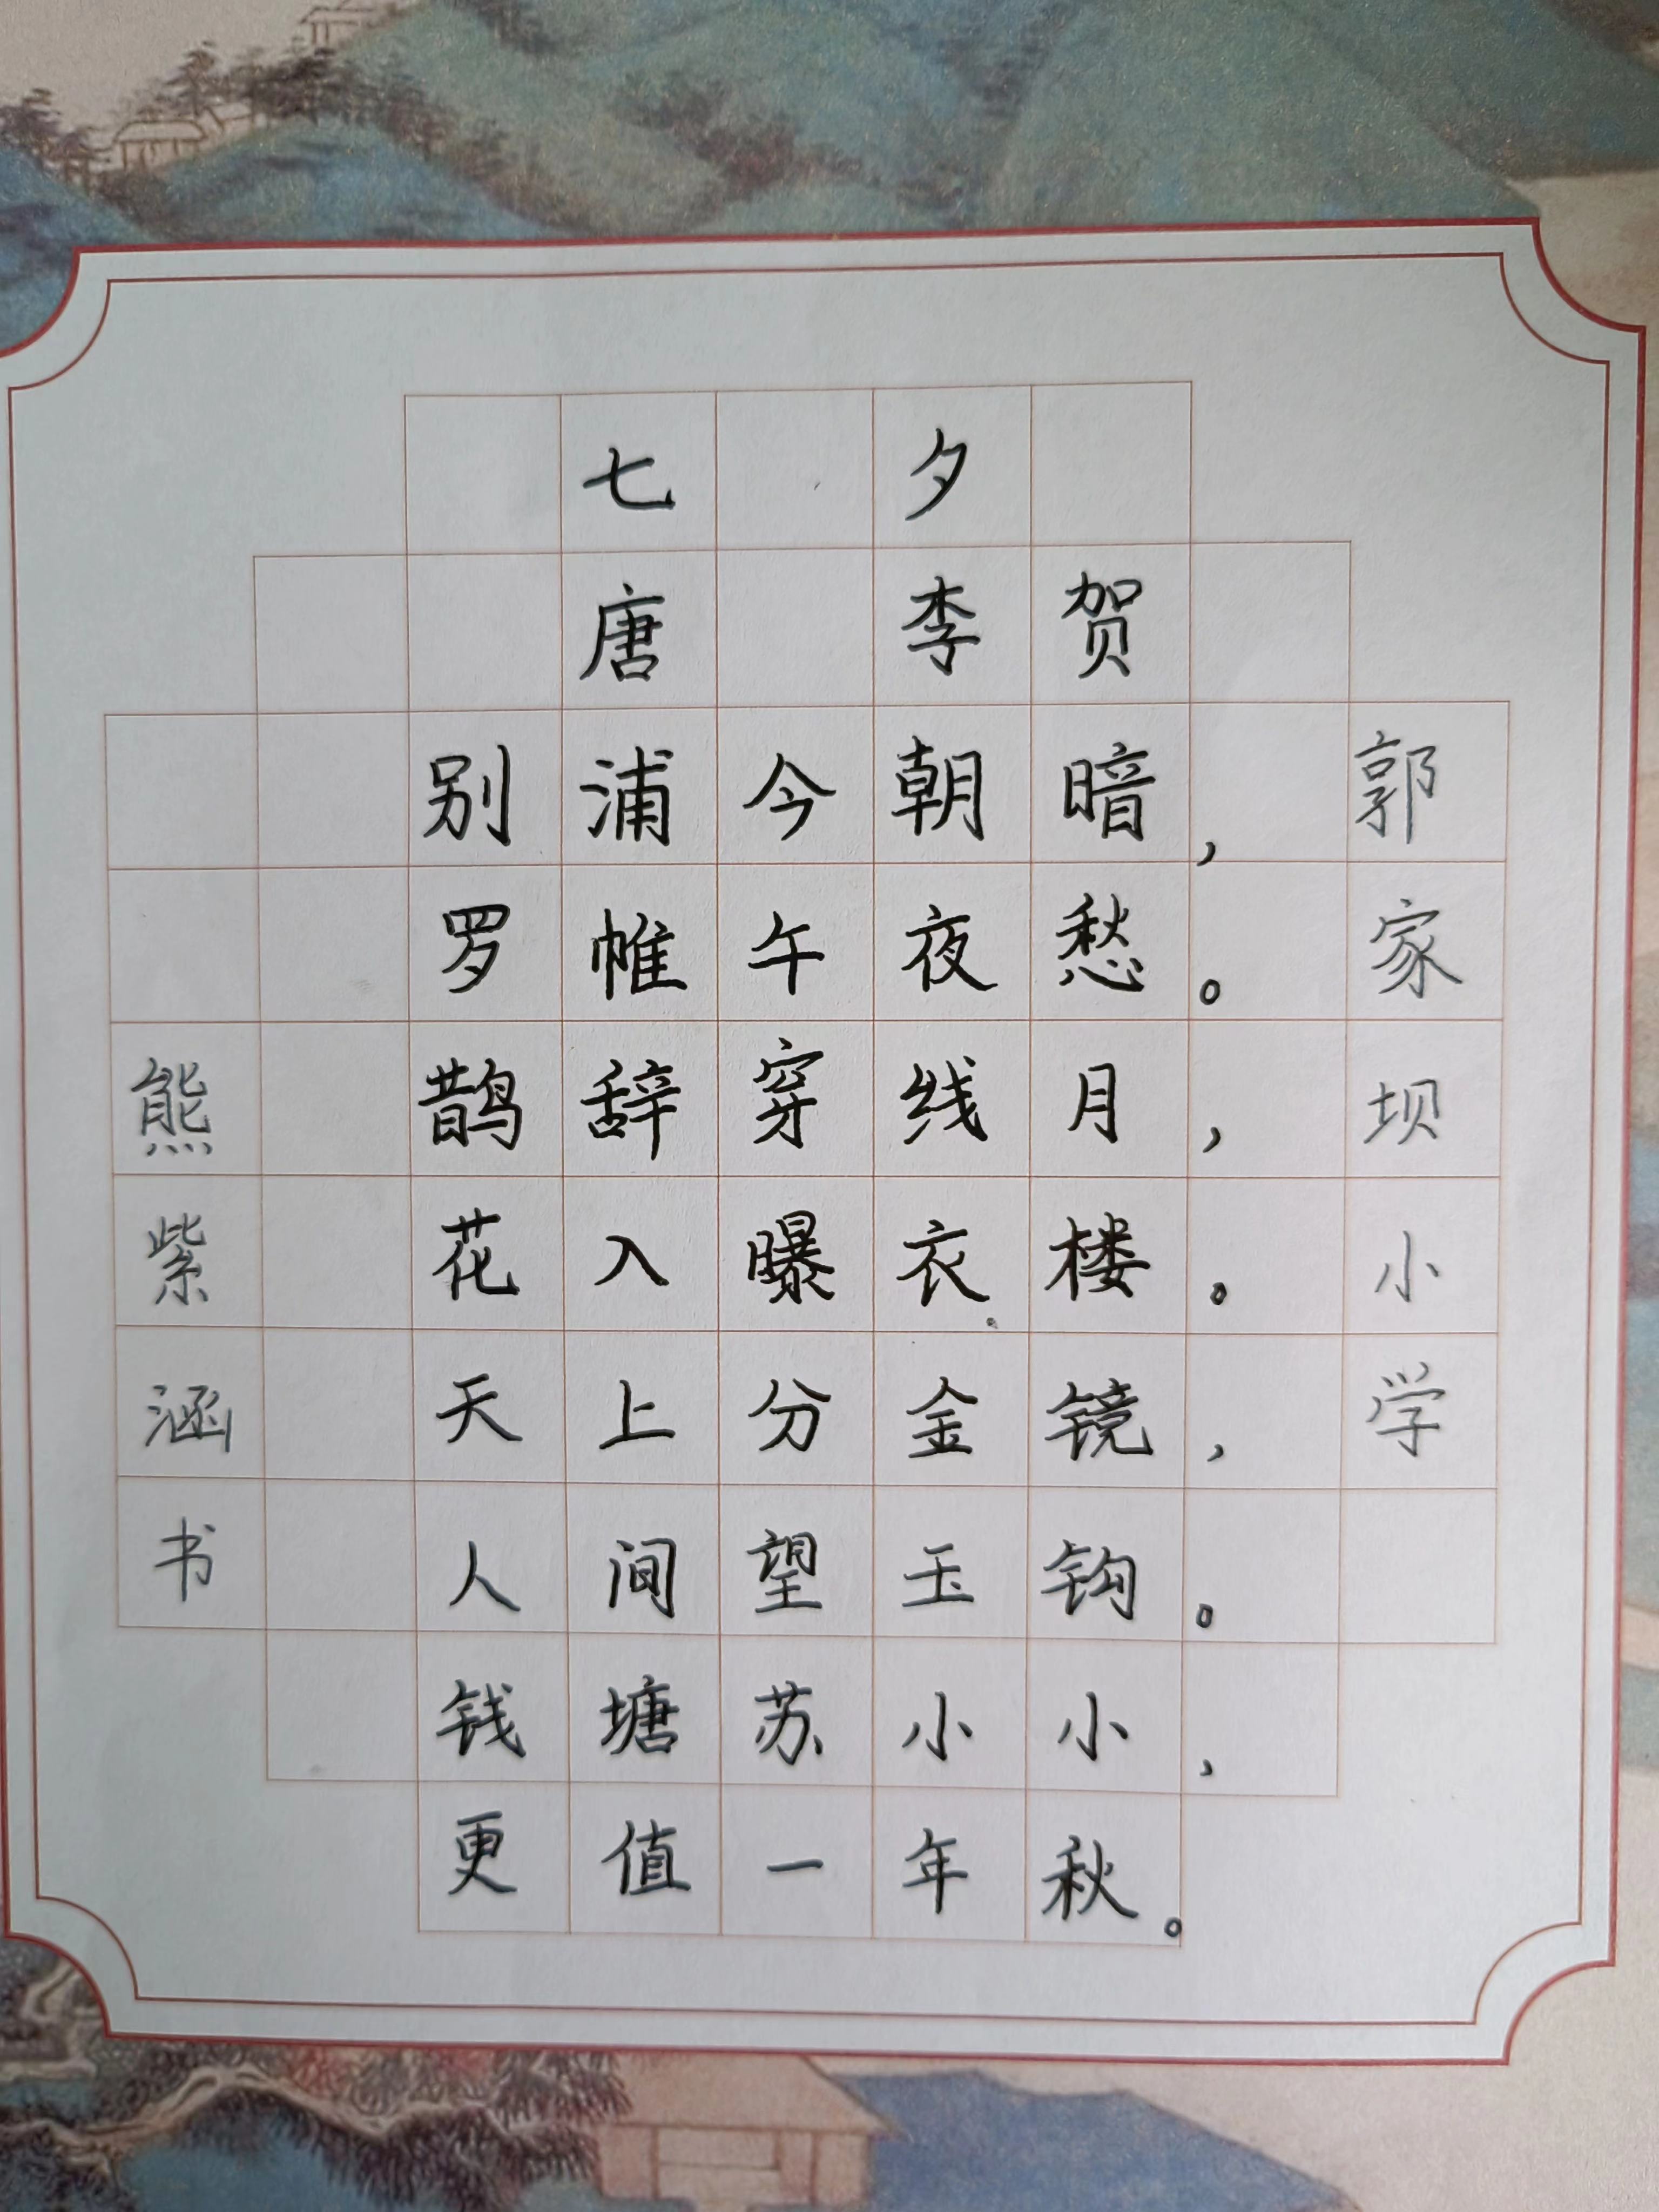 七夕
唐 李贺
别浦今朝暗，
罗帷午夜愁。
鹊辞穿线月，
花入曝衣楼。
天上分金镜，
人间望玉钩。
钱塘苏小小，
更值一年秋。
郭家坝小学
熊紫涵书